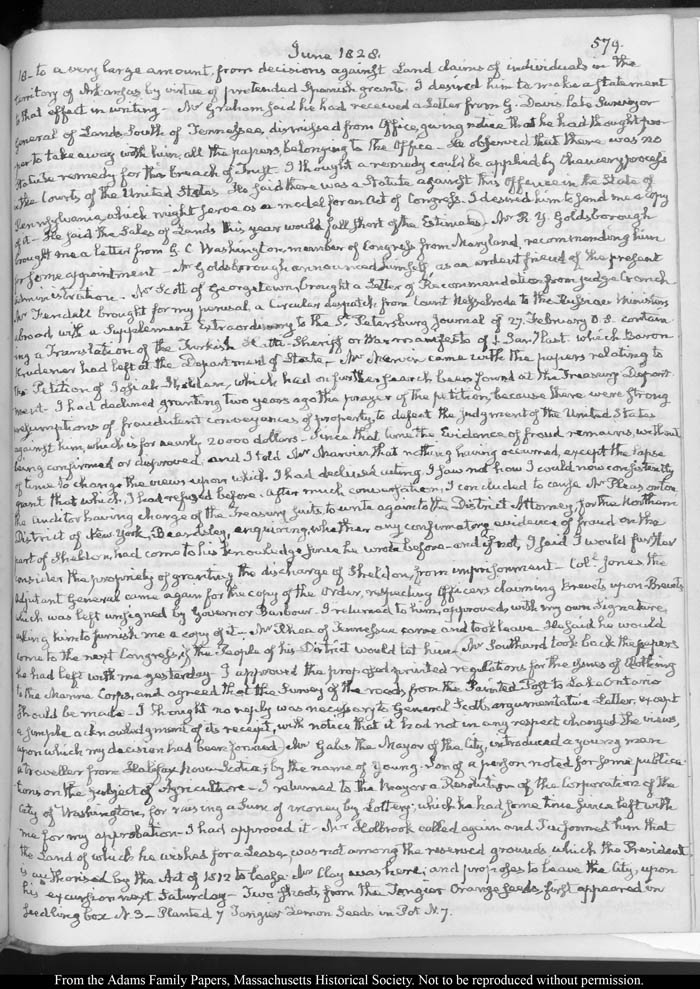 June 1828.
579.
18- to a very large amount, from decisions against Land claims of individuals in the
Territory of Arkansas by virtue of pretended Spanish grants. I desired him to make a statement
to that effect in writing- Mr Graham said he had received a Letter from G. Davis, late Surveyor
General of Lands South of Tennessee, dismissed from Office, giving notice that he had thought pro-
per to take away with him, all the papers belonging to the Office- He observed that there was no
Statute remedy for this breach of Trust. I thought a remedy could be applied by Chancery process
in the Courts of the United States. He said there was a Statute against this Offence in the State of
Pennsylvania, which might serve as a model for an Act of Congress. I desired him to send me a copy
of it- He said the Sales of Lands this year would fall short of the Estimates- Mr R. Y. Goldsborough
brought me a letter from G. C. Washington, member of Congress from Maryland, recommending him
for some appointment- Mr Goldsborough announced himself as an ardent friend of the present
Administration. Mr Scott of Georgetown, brought a Letter of Recommendation from judge Cranch
Mr Trendall brought for my perusal, a Circular despatch, from Count Nesselrode to the Russian Ministers
abroad, with a Supplement Extraordinary to the St. Petersburg Journal of 27. February O.S. contain-
ing a Translation of the Turkish Hatti-Sheriff or War manifesto of last which Baron
Krudener had left at the Department of State,- Mr Mercer came with the papers relating to
the Petition of Josiah Sheldon, which had on further search been found at the Treasury Depart-
ment- I had declined granting two years ago the prayer of the petition, because there were strong
presumptions of fraudulent conveyances of property, to defeat the judgment of the United States
against him, which is for nearly 20000 dollars- Since that time the Evidence of fraud remains, without
being confirmed or disproved and I told Mr that nothing having occurred, except the lapse
of time to change the views upon which I had declined acting I saw not how I could now consistently
grant that which I had refused before. After much conversation, I concluded to cause Mr Pleasonton
the Auditor having charge of the Treasury suits to write again to the District Attorney, for the Northern
District of New York, Beardsley, enquiring, whether any confirmatory evidence of fraud on the
part of Sheldon, had come to his knowledge since he wrote before- and if not, I said I would further
consider the propriety of granting the discharge of Sheldon, from imprisonment- Coll. Jones the
Adjutant General came again for the copy of the Order, respecting Officers claiming Brevets upon Brevets
which was left unsigned by Governor Barbour- I returned to him, approved, with my own Signature,
asking him to furnish me a copy of it- Mr Rhea of Tennessee came and took leave- He said he would
come to the next Congress, if the People of his District would let him- Mr Southard took back the papers
he had left with me yesterday- I approved the proposed printed regulations for the issues of clothing
to the Marine Corps, and agreed that the Survey of the roads from the Painted Post to Lake Ontario
should be made- I thought no reply was necessary to General Scott's argumentative Letter, except
a simple acknowledgment of its receipt, with notice that it had not in any respect changed the views,
upon which my decision had been formed- Mr Gales the Mayor of the City, introduced a young man
a Traveller from Halifax Nova-Scotia; by the name of Young. Son of a person noted for some publica-
tions on the subject of Agriculture- I returned to the Mayor a Resolution of the Corporation of the
City of Washington, for raising a Sum of money by Lottery; which he had some time since left with
me for my approbation- I had approved it- Mr Holbrook called again and I informed him that
the Land of which he wishes for a Lease, was not among the reserved grounds which the President
is authorised by the Act of 1812 to lease- Mr Clay was here; and proposes to leave the City, upon
his excursion next Saturday- Two Shoots from the Tangier Orange seeds, first appeared in
Seedling box N. 3- Planted 7 Tangier Lemon Seeds in Pot N. 7.
From the Adams Family Papers, Massachusetts Historical Society. Not to be reproduced without permission.